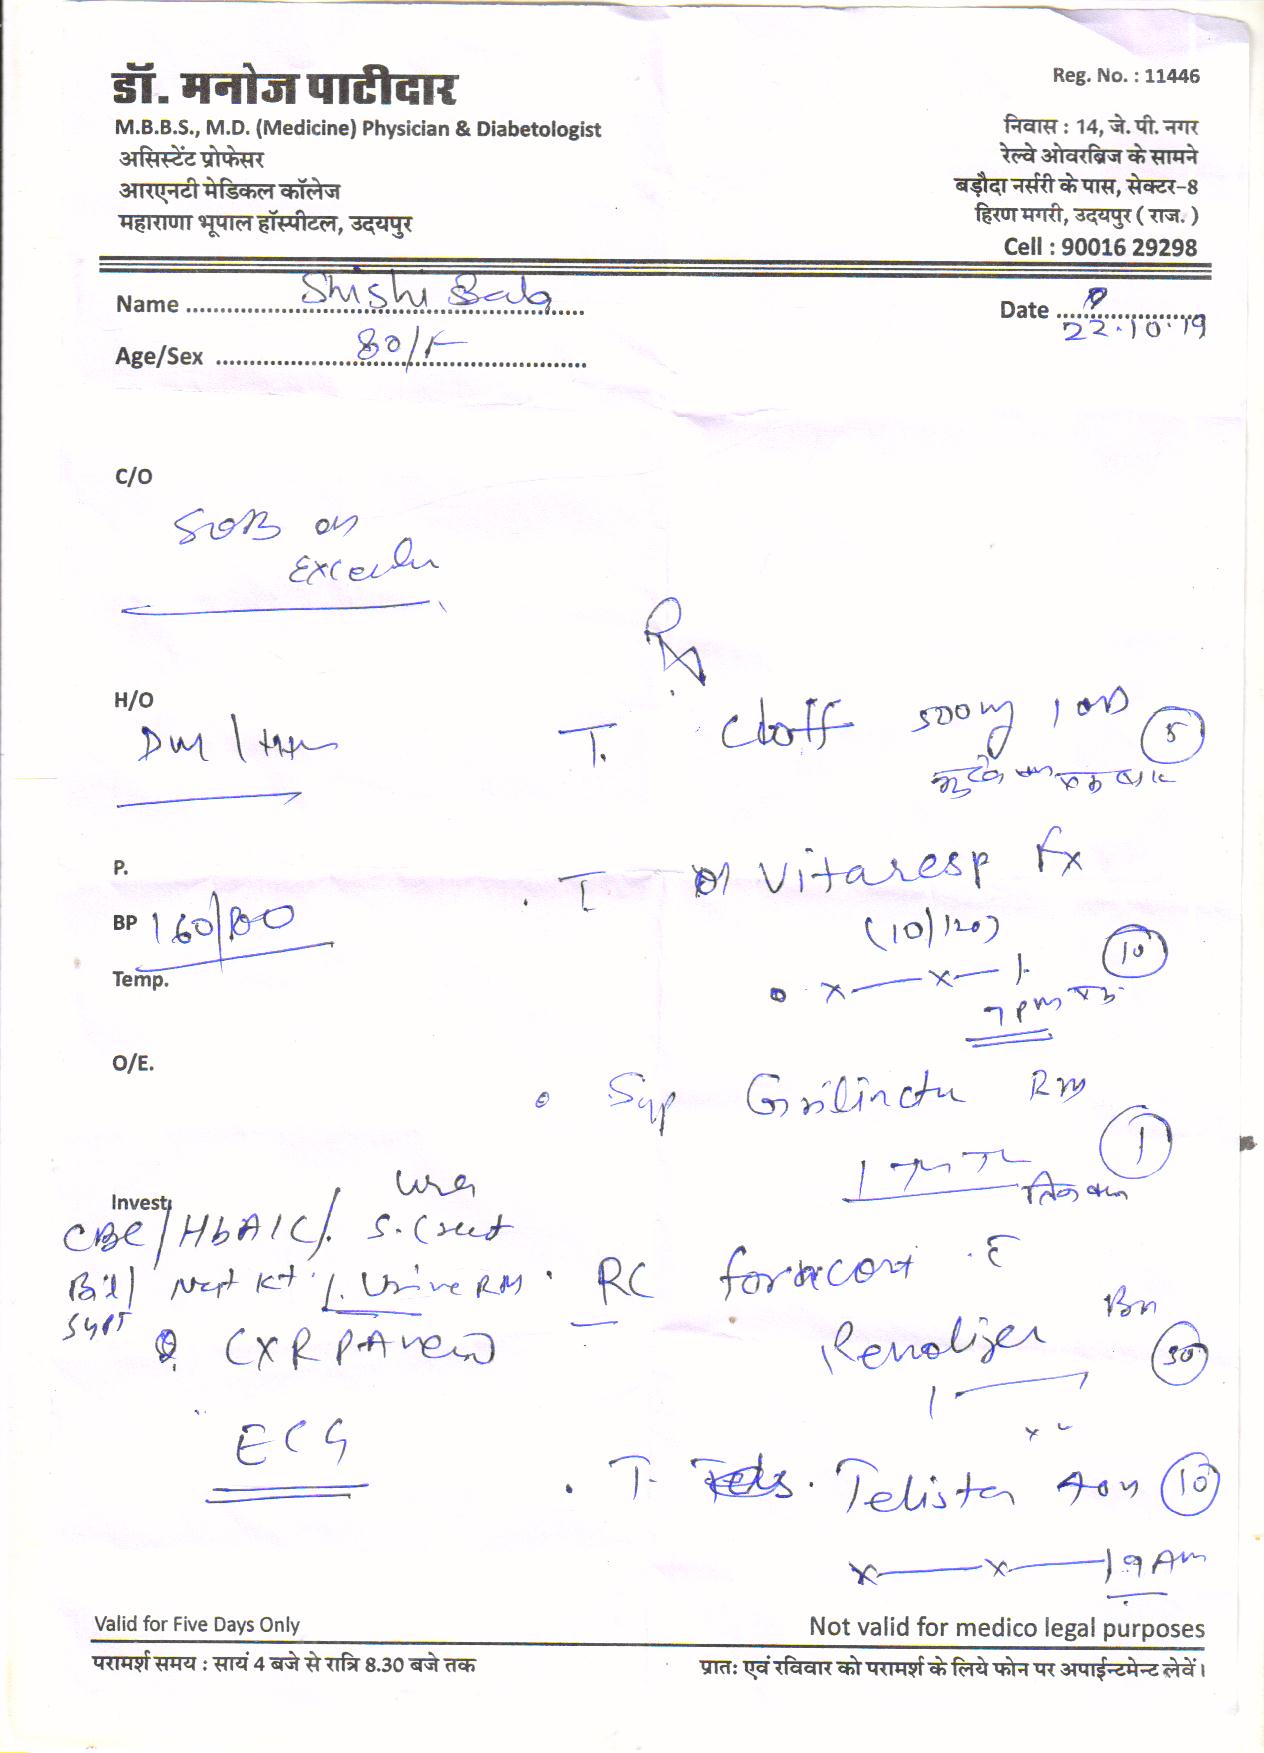 डॉ. मनोज पाटीदार
M.B.B.S., M.D. (Medicine) Physician & Diabetologist
असिस्टेंट प्रोफेसर
आरएनटी मेडिकल कॉलेज
महाराणा भूपाल हॉस्पीटल, उदयपुर
Reg. No. : 11446
निवास : 14, जे. पी. नगर
रेल्वे ओवरब्रिज के सामने
बड़ौदा नर्सरी के पास, सेक्टर-8
हिरण मगरी, उदयपुर ( राज. )
Cell : 90016 29298
Name Shishi
Date 22.10.19
Age/Sex 80/F
C/O
SOB on
H/O
DM / HTN
P.
BP 160/
Temp.
O/E.
Invest.
CBC / HbA1C / S. Creat
Urine RM
CXR PA view
ECG
Rx
T. 500mg 1 OD 5
T Vitaresp Fx
(10/120)
x — x — 1 10
7 pm
Syp Grilinctu RM
1
RC foracort
30
T. Telista 40 10
x — x — 1 9 Am
Valid for Five Days Only
Not valid for medico legal purposes
परामर्श समय : सायं 4 बजे से रात्रि 8.30 बजे तक
प्रातः एवं रविवार को परामर्श के लिये फोन पर अपाईन्टमेन्ट लेवें।